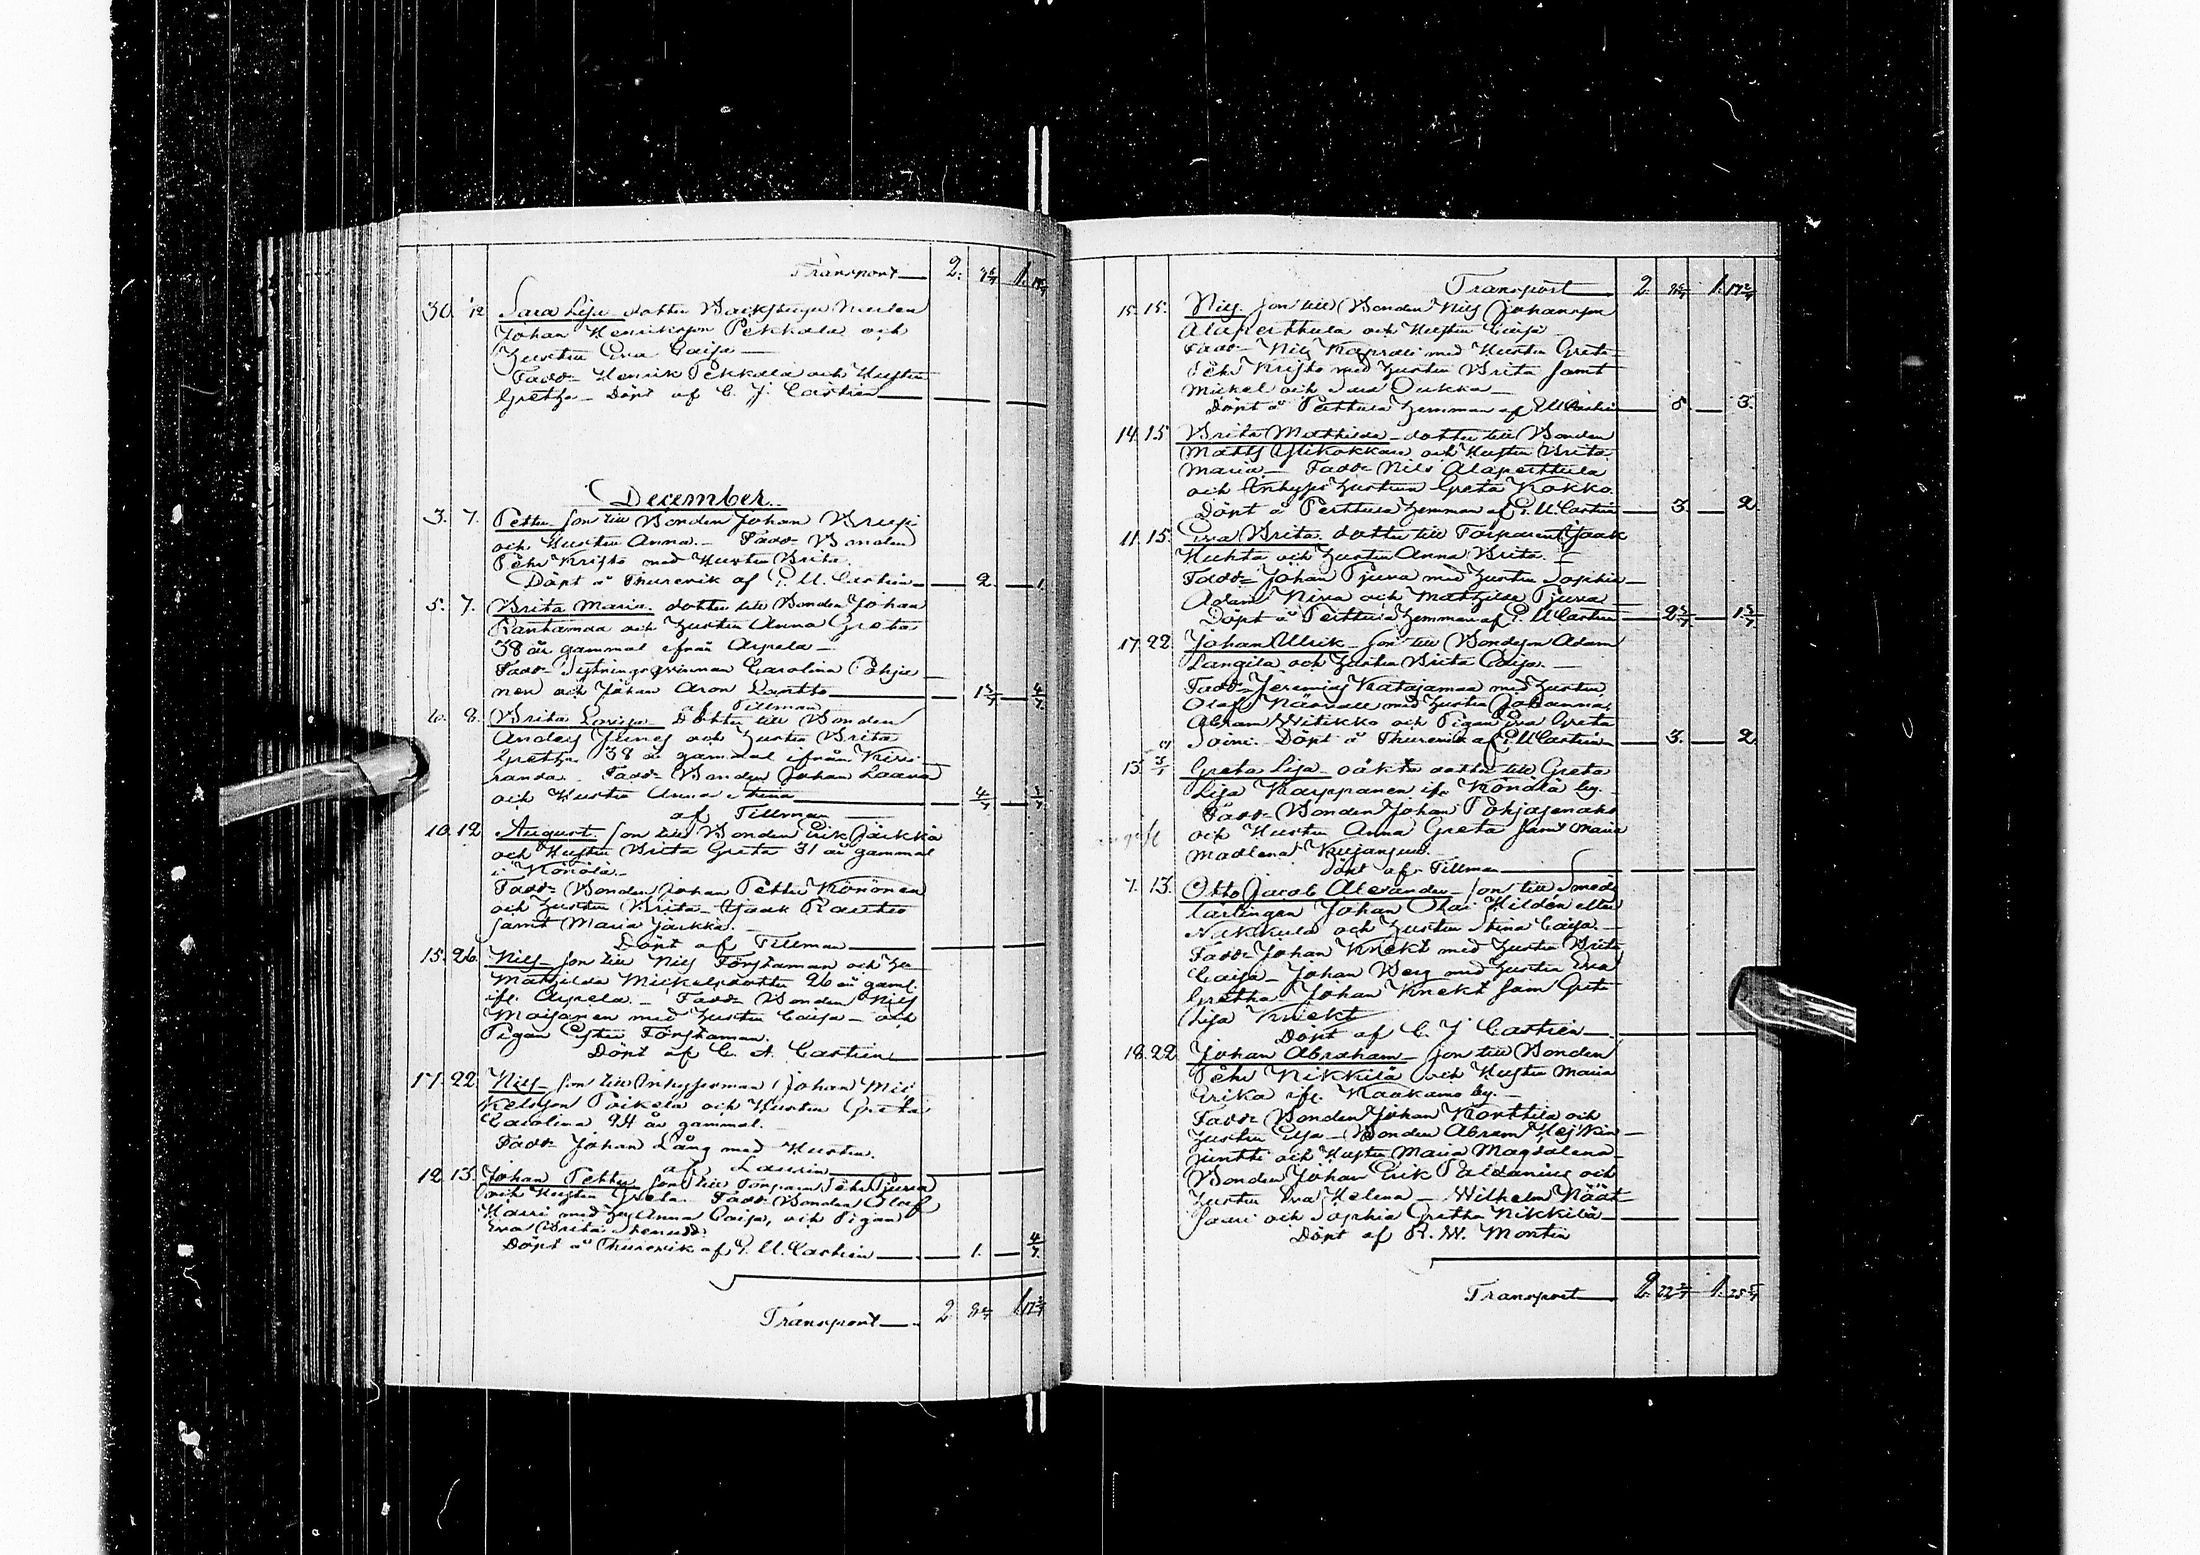 Transport 2.
30. 12 Sara Lisa dotter
Johan Henriksson Pekkala och
Hustru Eva Caisa
Fadd. Henrik Pekkala och Hustru
Gretha Döpt af C. J. Castrén
December
3. 7. Petter son till Bonden Johan
och Hustru Anna. Fadd. Bonden
Pehr Kristo med Hustru Brita.
Döpt å Thurevik af P. U. Castrén 2. 1
5. 7. Brita Maria dotter till Bonden Johan
Rantamaa och Hustru Anna Greta
38 år gammal ifrån Arpela
Fadd. Carolina Pohja
nen och Johan Aron Lantto
af Tillman
6. 8. Brita Lovisa Dotter till Bonden
Anders Junes och Hustru Brita
Gretha 38 år gammal ifrån Kivi
randa. Fadd. Bonden Johan Laava
och Hustru Anna Stina 4/7
af Tillman
10. 12 August son till Bonden Erik Jarkkä
och Hustru Brita Greta 31 år gammal
i Könölä.
Fadd. Bonden Johan Petter Könönen
och Hustru Brita Isaak Rautio
samt Maria Jarkkä.
Döpt af Tillman
15. 26. Nils son till Nils Förstaman och Hu
Mathilda Mickelsdotter 26 år gaml.
ifr. Arpela. Fadd. Bonden Nils
Moijanen med Hustru Caisa och
Pigan Ester Förstaman.
Döpt af C. A. Castrén
17. 22. Nils son till Inhysesman Johan Mic
kelsson Poikela och Hustru Greta
Carolina 24 år gammal.
Fadd. Johan Lång med Hustru.
af Laurin
12 13. Johan Petter son till Torparn Pehr Pjuva
och Hustru Greta. Fadd. Bonden Olof
Harri med Hu Anna Caisa, och Pigan
Eva Brita
Döpt å Thurevik af P. U. Castrén 1. 4/7
Transport 2
Transport 2.
15. 15. Nils son till Bonden Nils Johansson
Alaperttula och Hustru Caisa
Fadd. Nils med Hustru Greta
Pehr Kristo med Hustru Brita samt
Mickel och
Döpt å Perttula Hemman af P. U. Castrén 3.
14. 15 Brita Mathilda dotter till Bonden
Matts Ylikokkare och Hustru Brita
Maria Fadd. Nils Alaperttula
och Inhyses Hustrun Greta Kokko
Döpt å Perttula Hemman af P. U. Castrén 3. 2
11. 15. Eva Brita dotter till Torparen Isaak
Huhta och Hustru Anna Brita.
Fadd. Johan Pjuva med Hustru Sophia
Adam Niva och Mathilda Pjuva
Döpt å Perttula Hemman af P. U. Castrén
17. 22 Johan Ulrik son till Adam
Langila och Hustru Brita Caisa
Fadd. Jeremias Katajamaa med Hustru
Olof Näsvall med Hustru Johanna,
Abram Witikko och Pigan Eva Greta
Soini. Döpt å Thurevik af P. U. Castrén 3. 2
15 Greta Lisa oäkta dotter till Greta
Lisa Karppanen ifr. Könölä by.
Fadd. Bonden Johan Pohjajenaho
och Hustru Anna Greta samt Maria
Madlena
Döpt af Tillman
7. 13. Otto Jacob Alexander son till Smeds
lärlingen Johan Olai Hildén eller
Nikkula och Hustru Stina Caisa
Fadd. Johan Knekt med Hustru Brita
Caisa Johan Berg med Hustru Eva
Gretha Johan Knekt sam Greta
Lisa Knekt
Döpt af C. J. Castrén
18. 22 Johan Abraham son till Bonden
Pehr Nikkilä och Hustru Maria
Erika ifr. Kaakamo by.
Fadd. Bonden Johan Korttila och
Hustru Bonden Abram
juntti och Hustru Maria Magdalena
Bonden Johan Erik Paldanius och
Hustru Eva Helena Wilhelm Näät
saari och Sophia Gretha Nikkilä
Döpt af R. W. Montin
Transport 2.